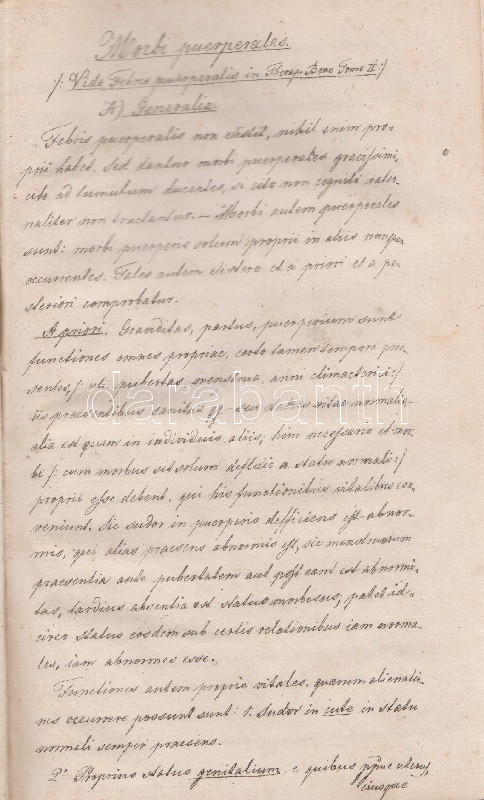 Morbi puerperales.
/: Vide Febris puerperalis in Therap. Bene Tomo II :/
A) Generalia.
Febris puerperalis non existit, nihil enim pro-
prii habet. Sed dantur morbi puerperales gravissimi,
cito ad tumulum ducentes, si cito non cogniti ratio-
naliter non tractantur. — Morbi autem puerperales
sunt: morbi puerperis solum proprii in aliis nunquam
occurrentes. Tales autem existere et a priori et a po-
steriori comprobatur.
A priori. Graviditas, partus, puerperium sunt
functiones omnes propriae, certo tamen tempore prae-
sentes, /: uti pubertas, menstrua, anni climacterici :/
iis praesentibus sanitas seu status vitae normalis
alia est quam in individuis aliis; hinc necessario et mor-
bi /: cum morbus sit solum deflexio a statu normali :/
proprii esse debent, qui his functionibus vitalibus con-
veniunt. Sic sudor in puerperis defficiens est abnor-
mis, qui alias praesens abnormis est, sic menstruorum
praesentia ante pubertatem aut post eam est abnormi-
tas, tardius absentia est status morbosus, patet id-
circo status eosdem sub certis relationibus iam norma-
les, iam abnormes esse.
Functiones autem propriae vitales, quarum alienatio-
nes occurrere possunt sunt: 1. Sudor in cute in statu
normali semper praesens.
2° Proprius status genitalium, e quibus nempe uterus,
eiusque
databanth